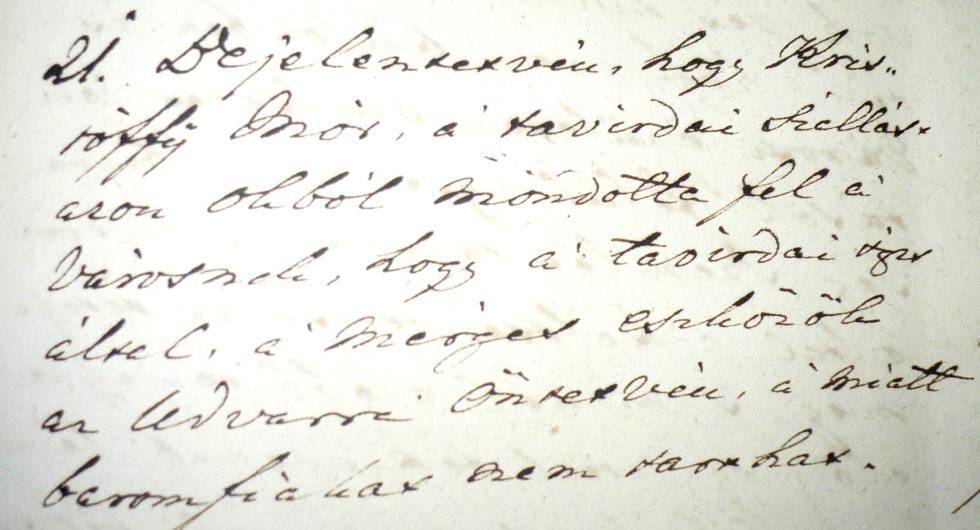 21. Bejelentetvén, hogy Kris„
tóffÿ Mór, á tavirdai szállást
azon okból mondotta fel á
Városnak, hogy á tavirdai
által, á mérges eszközök
az Udvarra öntetvén, á miatt
baromfiakat nem tarthat.